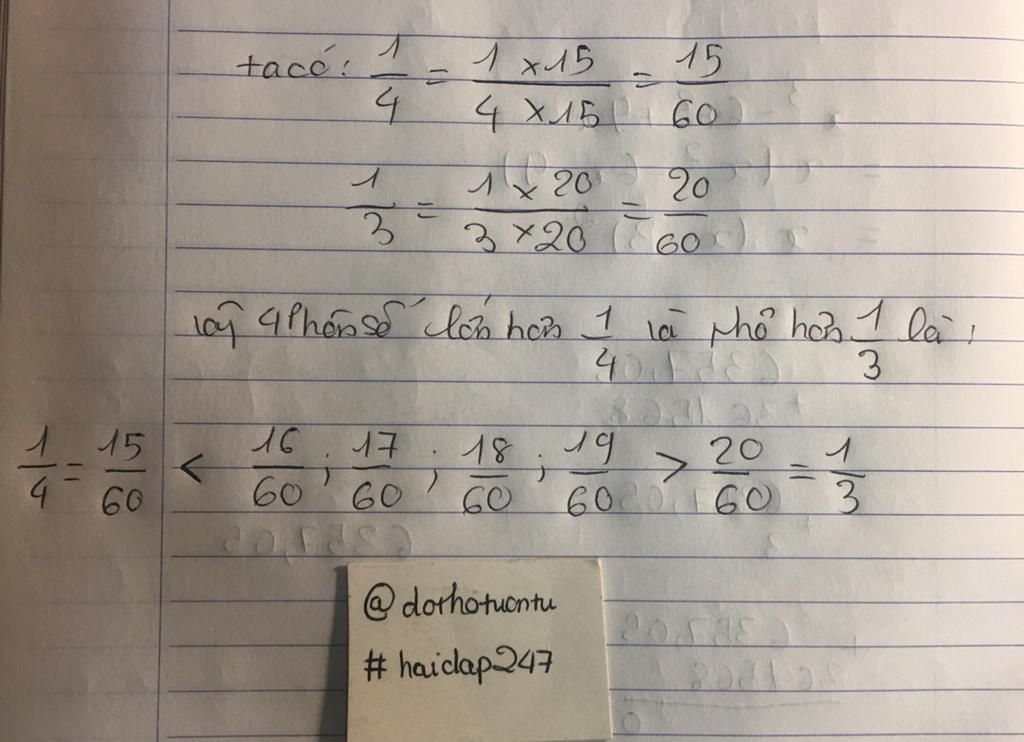 ta có: 1/4 = 1 × 15 / 4 × 15 = 15/60
1/3 = 1 × 20 / 3 × 20 = 20/60
vậy 4 Phân số lớn hơn 1/4 và nhỏ hơn 1/3 là:
1/4 = 15/60 < 16/60 ; 17/60 ; 18/60 ; 19/60 > 20/60 = 1/3
@dothotuontu
# haidap247